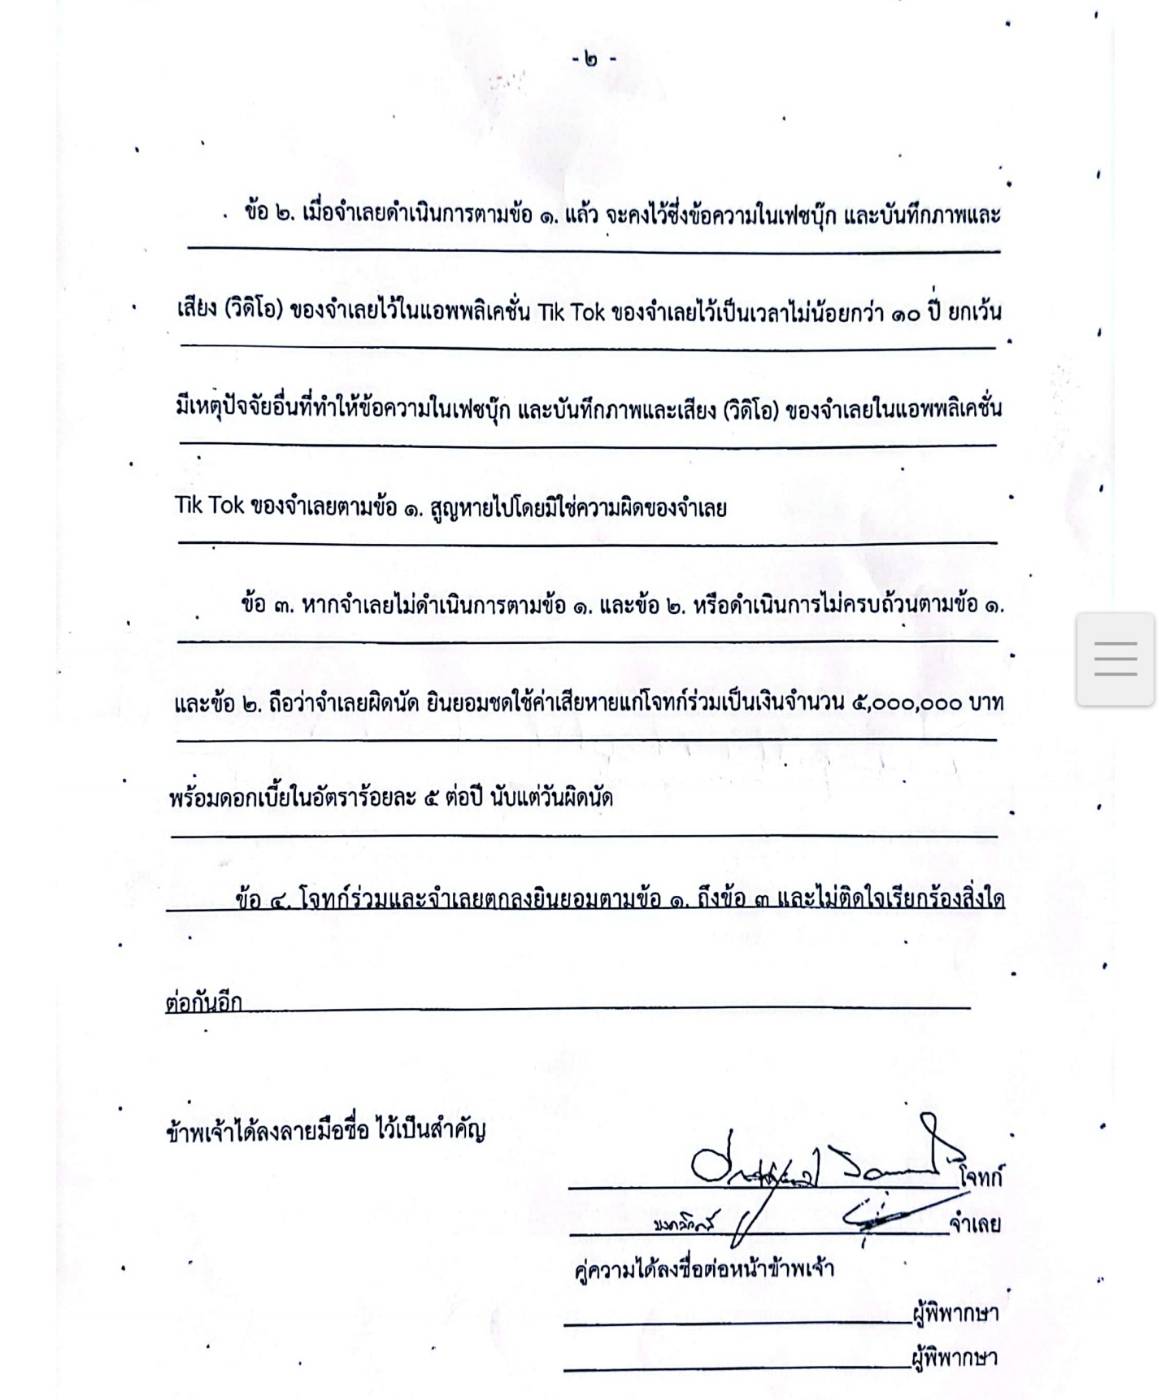 - ๒ -
ข้อ ๒. เมื่อจำเลยดำเนินการตามข้อ ๑. แล้ว จะคงไว้ซึ่งข้อความในเฟซบุ๊ก และบันทึกภาพและ
เสียง (วิดิโอ) ของจำเลยไว้ในแอพพลิเคชั่น Tik Tok ของจำเลยไว้เป็นเวลาไม่น้อยกว่า ๑๐ ปี ยกเว้น
มีเหตุปัจจัยอื่นที่ทำให้ข้อความในเฟซบุ๊ก และบันทึกภาพและเสียง (วิดิโอ) ของจำเลยในแอพพลิเคชั่น
Tik Tok ของจำเลยตามข้อ ๑. สูญหายไปโดยมิใช่ความผิดของจำเลย
ข้อ ๓. หากจำเลยไม่ดำเนินการตามข้อ ๑. และข้อ ๒. หรือดำเนินการไม่ครบถ้วนตามข้อ ๑.
และข้อ ๒. ถือว่าจำเลยผิดนัด ยินยอมชดใช้ค่าเสียหายแก่โจทก์ร่วมเป็นเงินจำนวน ๕,๐๐๐,๐๐๐ บาท
พร้อมดอกเบี้ยในอัตราร้อยละ ๕ ต่อปี นับแต่วันผิดนัด
ข้อ ๔. โจทก์ร่วมและจำเลยตกลงยินยอมตามข้อ ๑. ถึงข้อ ๓ และไม่ติดใจเรียกร้องสิ่งใด
ต่อกันอีก
ข้าพเจ้าได้ลงลายมือชื่อ ไว้เป็นสำคัญ
โจทก์
จำเลย
คู่ความได้ลงชื่อต่อหน้าข้าพเจ้า
ผู้พิพากษา
ผู้พิพากษา